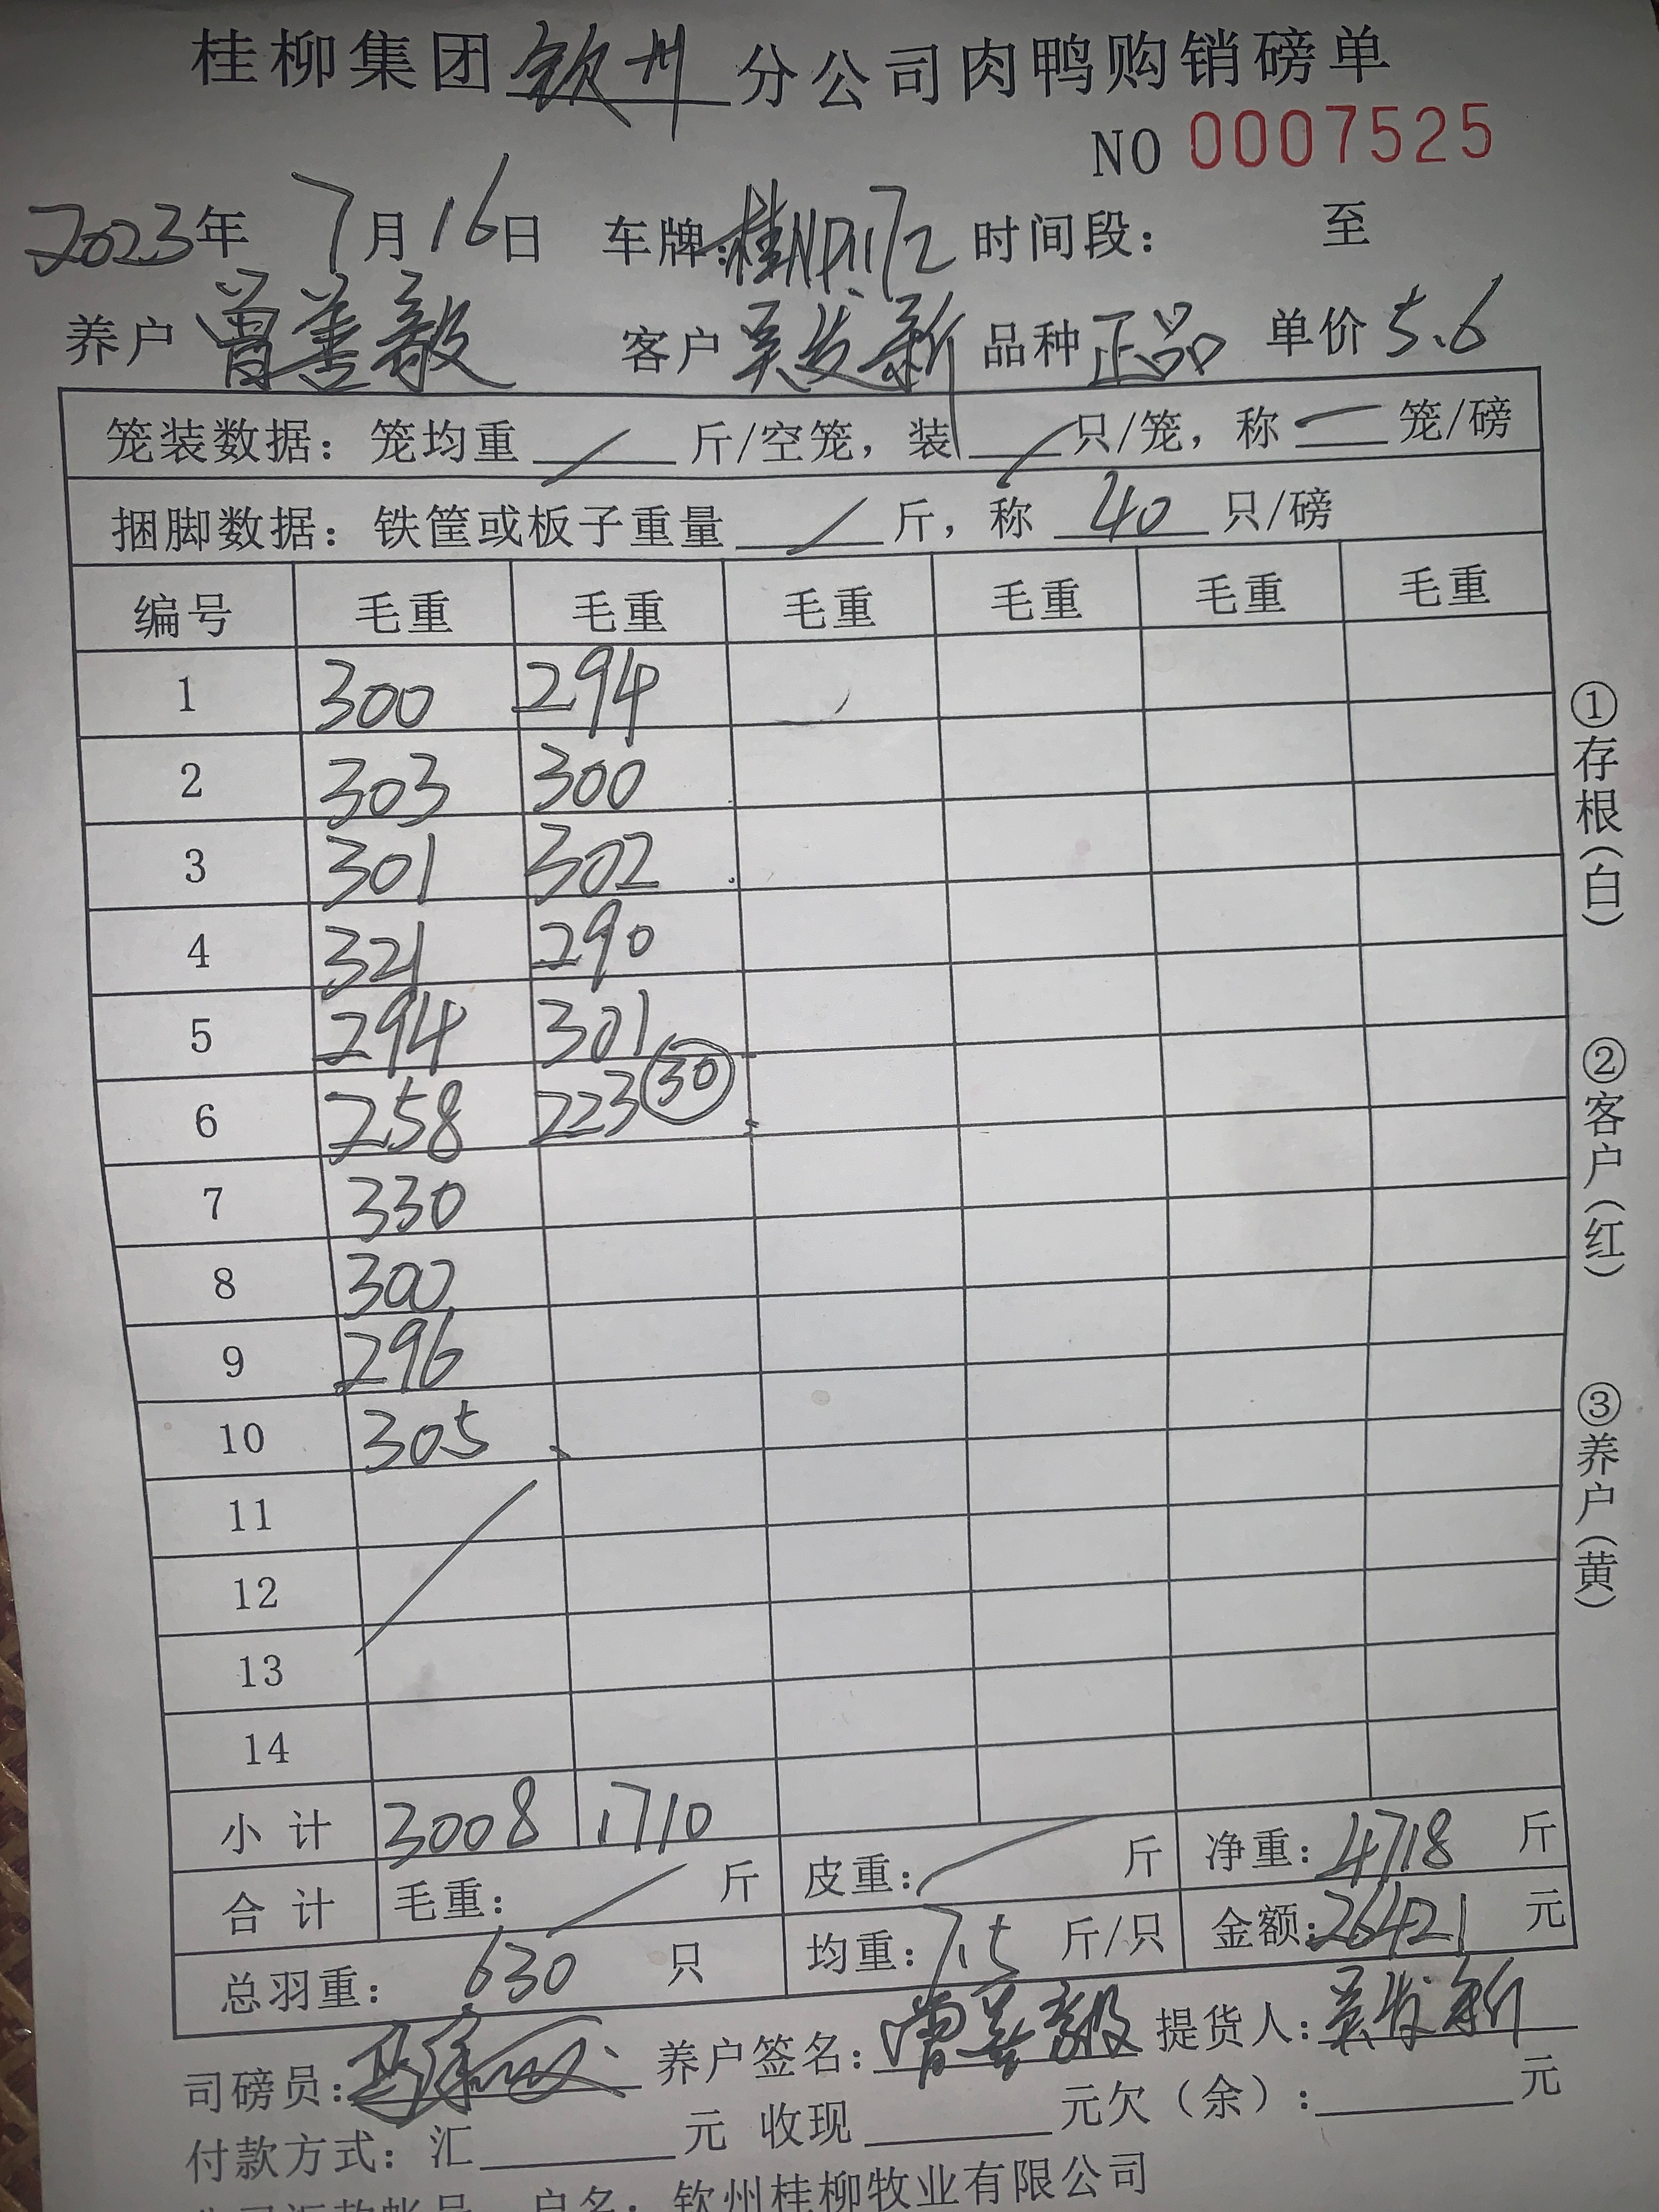 桂柳集团钦州分公司肉鸭购销磅单
NO 0007525
2023年 7月16日 车牌: 时间段: 至
养户 曾善毅 客户 吴发新 品种 正品 单价 5.6
笼装数据: 笼均重 / 斤/空笼, 装 / 只/笼, 称 一 笼/磅
捆脚数据: 铁筐或板子重量 / 斤, 称 40 只/磅
编号 毛重 毛重 毛重 毛重 毛重 毛重
1 300 294
2 303 300
3 301 302
4 321 290
5 294 301
6 258 223 30
7 330
8 300
9 296
10 305
11
12
13
14
小计 3008 1710
合计 毛重: / 斤 皮重: / 斤 净重: 4718 斤
总羽重: 630 只 均重: 7.5 斤/只 金额: 26421 元
司磅员: 养户签名: 曾善毅 提货人: 吴发新
付款方式: 汇 元 收现 元欠(余): 元
户名: 钦州桂柳牧业有限公司
①存根(白)
②客户(红)
③养户(黄)